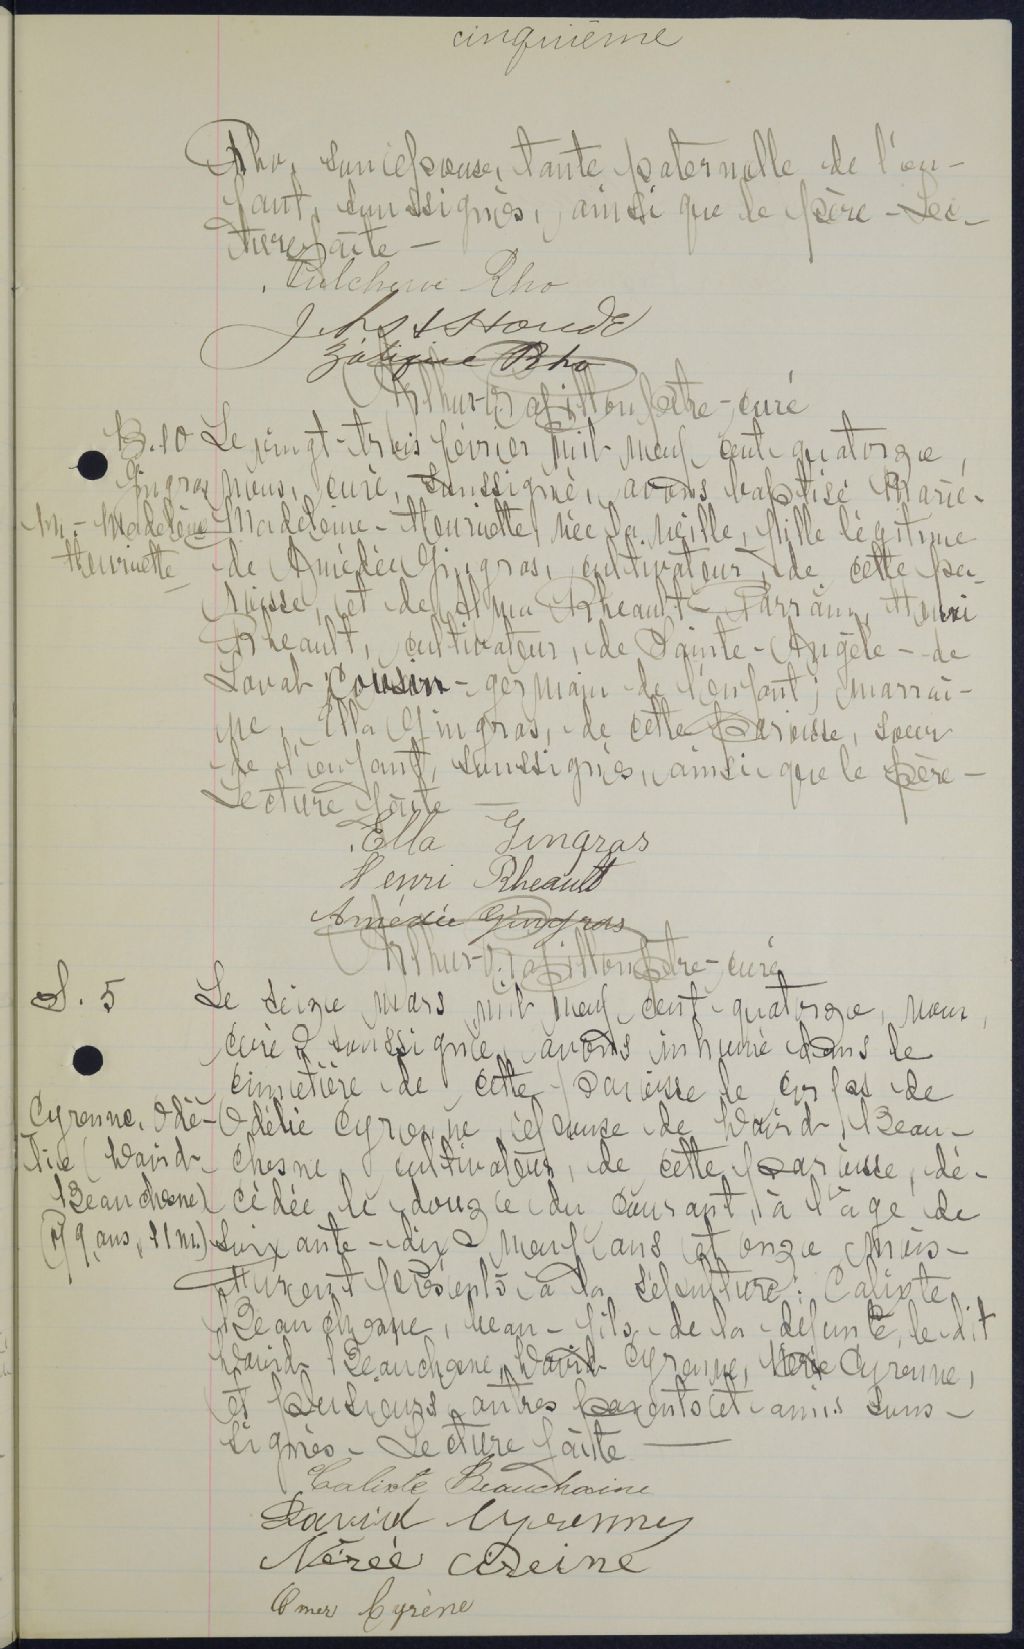 cinquième
Rho, son épouse, tante paternelle de l'en-
fant, soussignés, ainsi que le père - Lec-
ture faite -
Pulchérie Rho
Houde
Zélique Rho
Arthur Papillon ptre-curé
B. 10 Le vingt-trois février mil neuf cent quatorze,
Gingras nous, curé, soussigné, avons baptisé Marie-
M.-Madeleine Madeleine-Henriette, née la veille, fille légitime
Henriette de Amédée Gingras, cultivateur, de cette pa-
roisse, et de Rheault - Parrain, Henri
Rheault, cultivateur, de Sainte-Angèle-de
Laval cousin-germain de l'enfant; marrai-
ne, Ella Gingras, de cette paroisse, soeur
de l'enfant, soussignés, ainsi que le père -
Lecture faite -
Ella Gingras
Henri Rheault
Amédée Gingras
Arthur Papillon ptre-curé
S. 5 Le seize mars mil neuf cent quatorze, nous,
curé soussigné, avons inhumé dans le
cimetière de cette paroisse le corps de
Cyrenne, Odé- Odélie Cyrenne, épouse de David Beau-
lie (David chesne, cultivateur, de cette paroisse, dé-
Beauchesne) cédée le douze du courant, à l'âge de
(79 ans, 11 m.) soixante-dix neuf ans et onze mois -
Furent présents à la sépulture: Calixte
Beauchesne, beau-fils de la défunte, le dit
David Beauchesne, David Cyrenne, Nérée Cyrenne,
et plusieurs autres parents et amis sous-
signés - Lecture faite -
Calixte Beauchaine
David Cyrenne
Nérée Cireine
Omer Cyrène